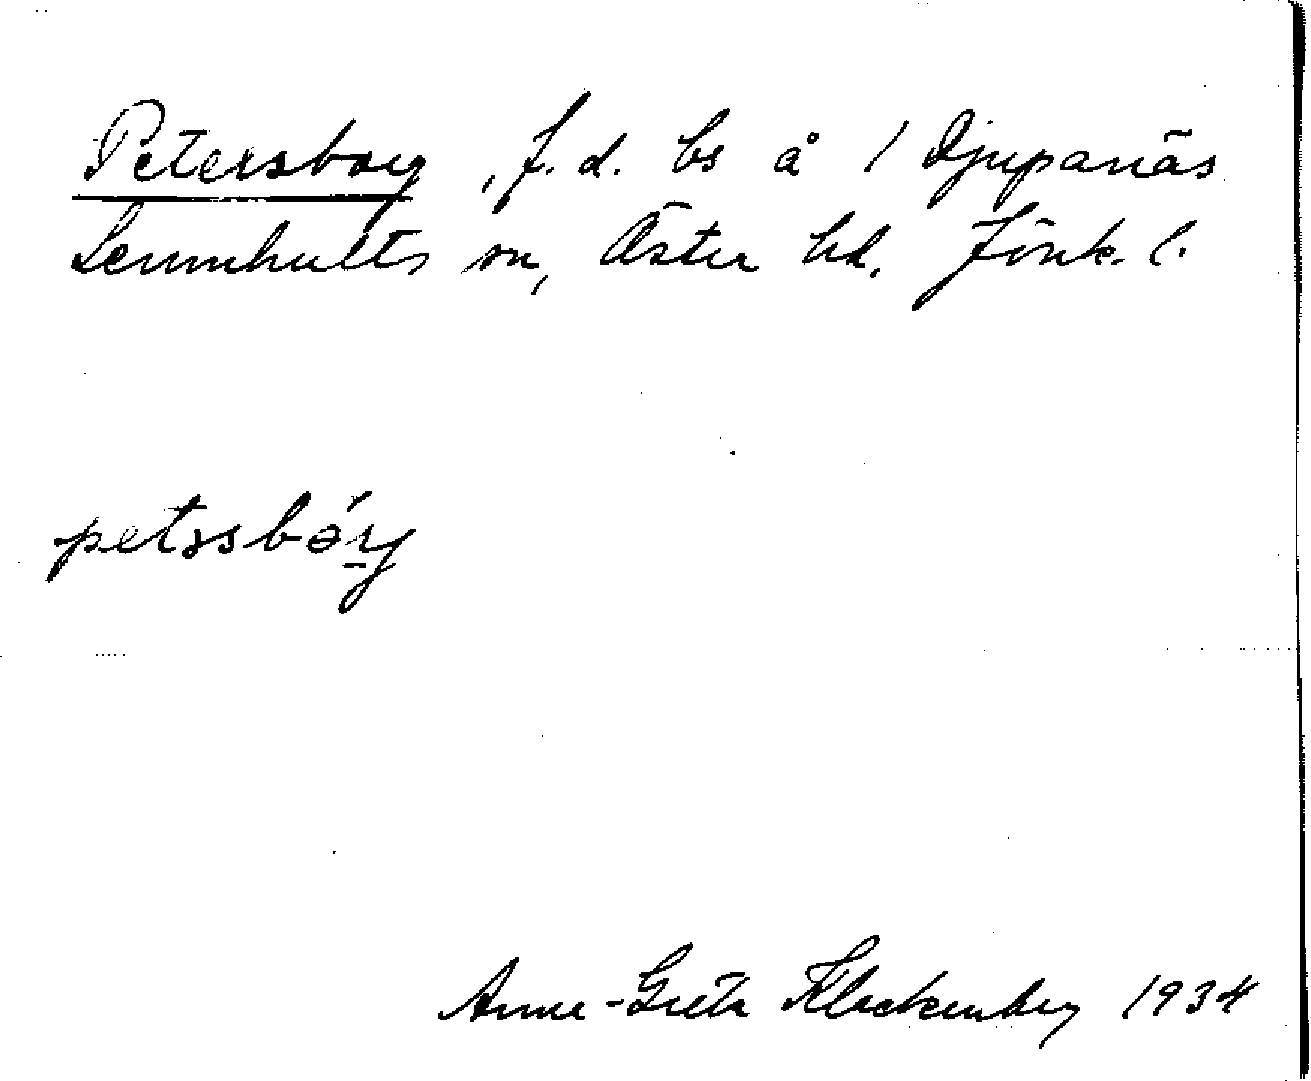 Petersborg, f.d. bs å / Djupanäs
Lemnhults sn, Öster hd. Jönk. l.
petəsbórj
Anna-Greta Klockenberg 1934